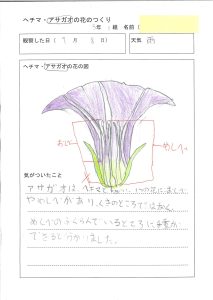 ヘチマ・アサガオの花のつくり
5年 組 名前(
観察した日( 9月 8日) 天気 雨
ヘチマ・アサガオの花の図
おしべ
めしべ
気がついたこと
アサガオは、ヘチマと 一つの花におしべ
やめしべがあり、くきのところで
めしべのふくらんでいるところに種が
できると分かりました。